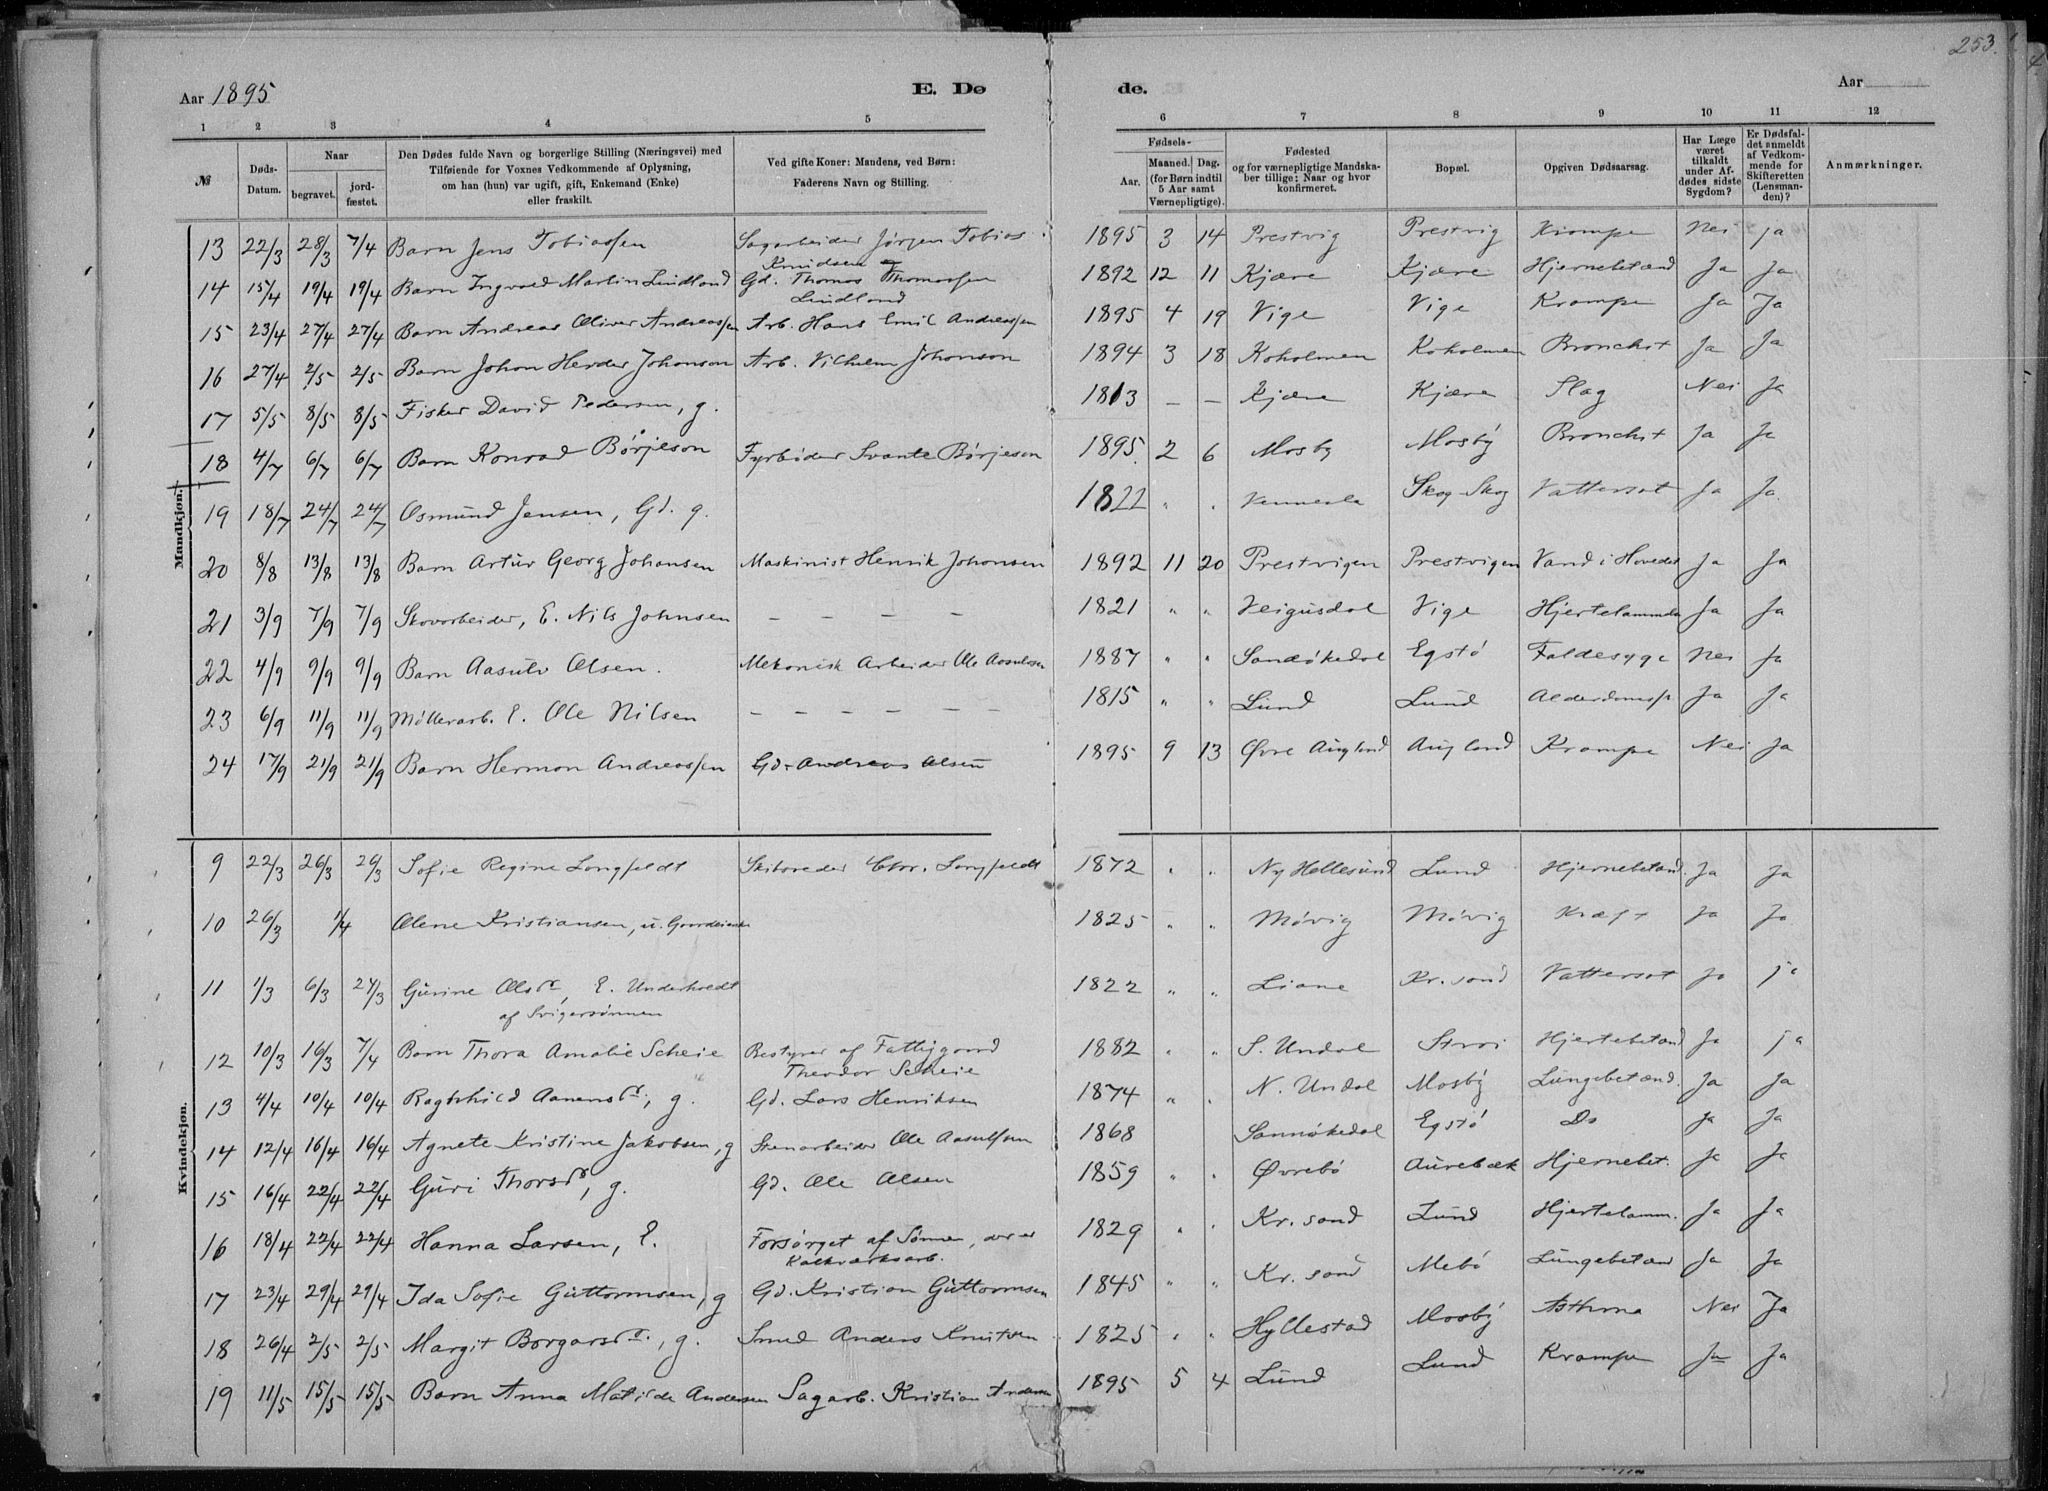 253.
Aar 1895
E. Dø
de.
Aar
1 2 3 4 5
6 7 8 9 10 11 12
№
Døds-Datum.
Naar
begravet.
jord-fæstet.
Den Dødes fulde Navn og borgerlige Stilling (Næringsvei) med
Tilføiende for Voxnes Vedkommende af Oplysning,
om han (hun) var ugift, gift, Enkemand (Enke)
eller fraskilt.
Ved gifte Koner: Mandens, ved Børn:
Faderens Navn og Stilling.
Fødsels-
Aar.
Maaned. Dag.
(for Børn indtil
5 Aar samt
Værnepligtige).
Fødested
og for værnepligtige Mandska-
ber tillige: Naar og hvor
konfirmeret.
Bopæl.
Opgiven Dødsaarsag.
Har Læge
været
tilkaldt
under Af-
dødes sidste
Sygdom?
Er Dødsfal-
det anmeldt
af Vedkom-
mende for
Skifteretten
(Lensman-
den)?
Anmærkninger.
Mandkjøn.
13 22/3 28/3 7/4 Barn Jens Tobiassen Sagarbeider Jørgen Tobias Knudsen 1895 3 14 Prestvig Prestvig Krampe Nei ja
14 15/4 19/4 19/4 Barn Ingvald Martin Lindland Gd. Thomas Thomassen Lindland 1892 12 11 Kjære Kjære Hjernebetænd Ja Ja
15 23/4 27/4 27/4 Barn Andreas Oliver Andreassen Arb. Hans Emil Andreassen 1895 4 19 Vige Vige Krampe Ja Ja
16 27/4 2/5 2/5 Barn Johan Herder Johanson Arb. Vilhelm Johanson 1894 3 18 Koholmen Koholmen Bronchit Ja Ja
17 5/5 8/5 8/5 Fisker David Pedersen, g. 1813 – – Kjære Kjære Slag Nei Ja
18 4/7 6/7 6/7 Barn Konrad Börjeson Fyrbøder Svante Börjeson 1895. 2 6 Mosby Mosby Bronchit Ja Ja
19 18/7 24/7 24/7 Osmund Jensen, Gd. g. 1822 " " Vennesla Skog Skog Vattersot Ja Ja
20 8/8 13/8 13/8 Barn Artur Georg Johansen Maskinist Henrik Johansen 1892 11 20 Prestvigen Prestvigen Vand i Hovedet Ja Ja
21 3/9 7/9 7/9 Skovarbeider, E. Nils Johnsen – – – – 1821 " " Veigusdal Vige Hjertelammelse Ja Ja
22 4/9 9/9 9/9 Barn Aasulv Olsen. Mekanisk Arbeider Ole Aasulvsen 1887 " " Sandøkedal Egstø Faldesyge Nei Ja
23 6/9 11/9 11/9 Møllerarb. E. Ole Nilsen – – – – – – 1815 " " Lund Lund Alderdomssv Ja Ja
24 17/9 21/9 21/9 Barn Herman Andreassen Gd. Andreas Olsen 1895 9 13 Øvre Augland Augland Krampe Nei Ja
Kvindekjøn.
9 22/3 26/3 26/3 Sofie Regine Langfeldt Skibsreder Chr. Langfeldt 1872 " " Ny Hellesund Lund Hjernebetænd. Ja Ja
10 26/3 1/4 Olene Kristiansen, u. 1825 " " Møvig Møvig Kræft Ja Ja
11 1/3 6/3 27/3 Gurine Olsdr, E. Underholdt af Svigersønnen 1822 " " Liane Kr. sand Vattersot Ja ja
12 10/3 16/3 7/4 Barn Thora Amalie Scheie Bestyrer af Fattiggaard Theodor Scheie 1882 " " S. Undal Strai Hjertebetænd Ja ja
13 4/4 10/4 10/4 Ragnhild Aanensdr., g. Gd. Lars Henriksen 1874 " " N. Undal Mosby Lungebetænd. Ja Ja
14 12/4 16/4 16/4 Agnete Kristine Jakobsen, g Stenarbeider Ole Aasulfsen 1868 Sannøkedal Egstø Do Ja Ja
15 16/4 22/4 22/4 Guri Thorsdr, g. Gd. Ole Olsen 1859 " " Øvrebø Aurebæk Hjernebet. Ja Ja
16 18/4 22/4 22/4 Hanna Larsen, E. Forsørget af Sønnen, der er Kalkværksarb. 1829 " " Kr. sand Lund Hjertelamm. Ja Ja
17 23/4 29/4 29/4 Ida Sofie Guttormsen, g Gd. Kristian Guttormsen 1845 " " Kr. sand Mebø Lungebetænd Ja Ja
18 26/4 2/5 2/5 Margit Borgarsdr., g. Smed Anders Knutsen 1825 " " Hyllestad Mosby Asthma Nei Ja
19 11/5 15/5 15/5 Barn Anna Matilde Andersen Sagarb. Kristian Andersen 1895 5 4 Lund Lund Krampe Ja Ja